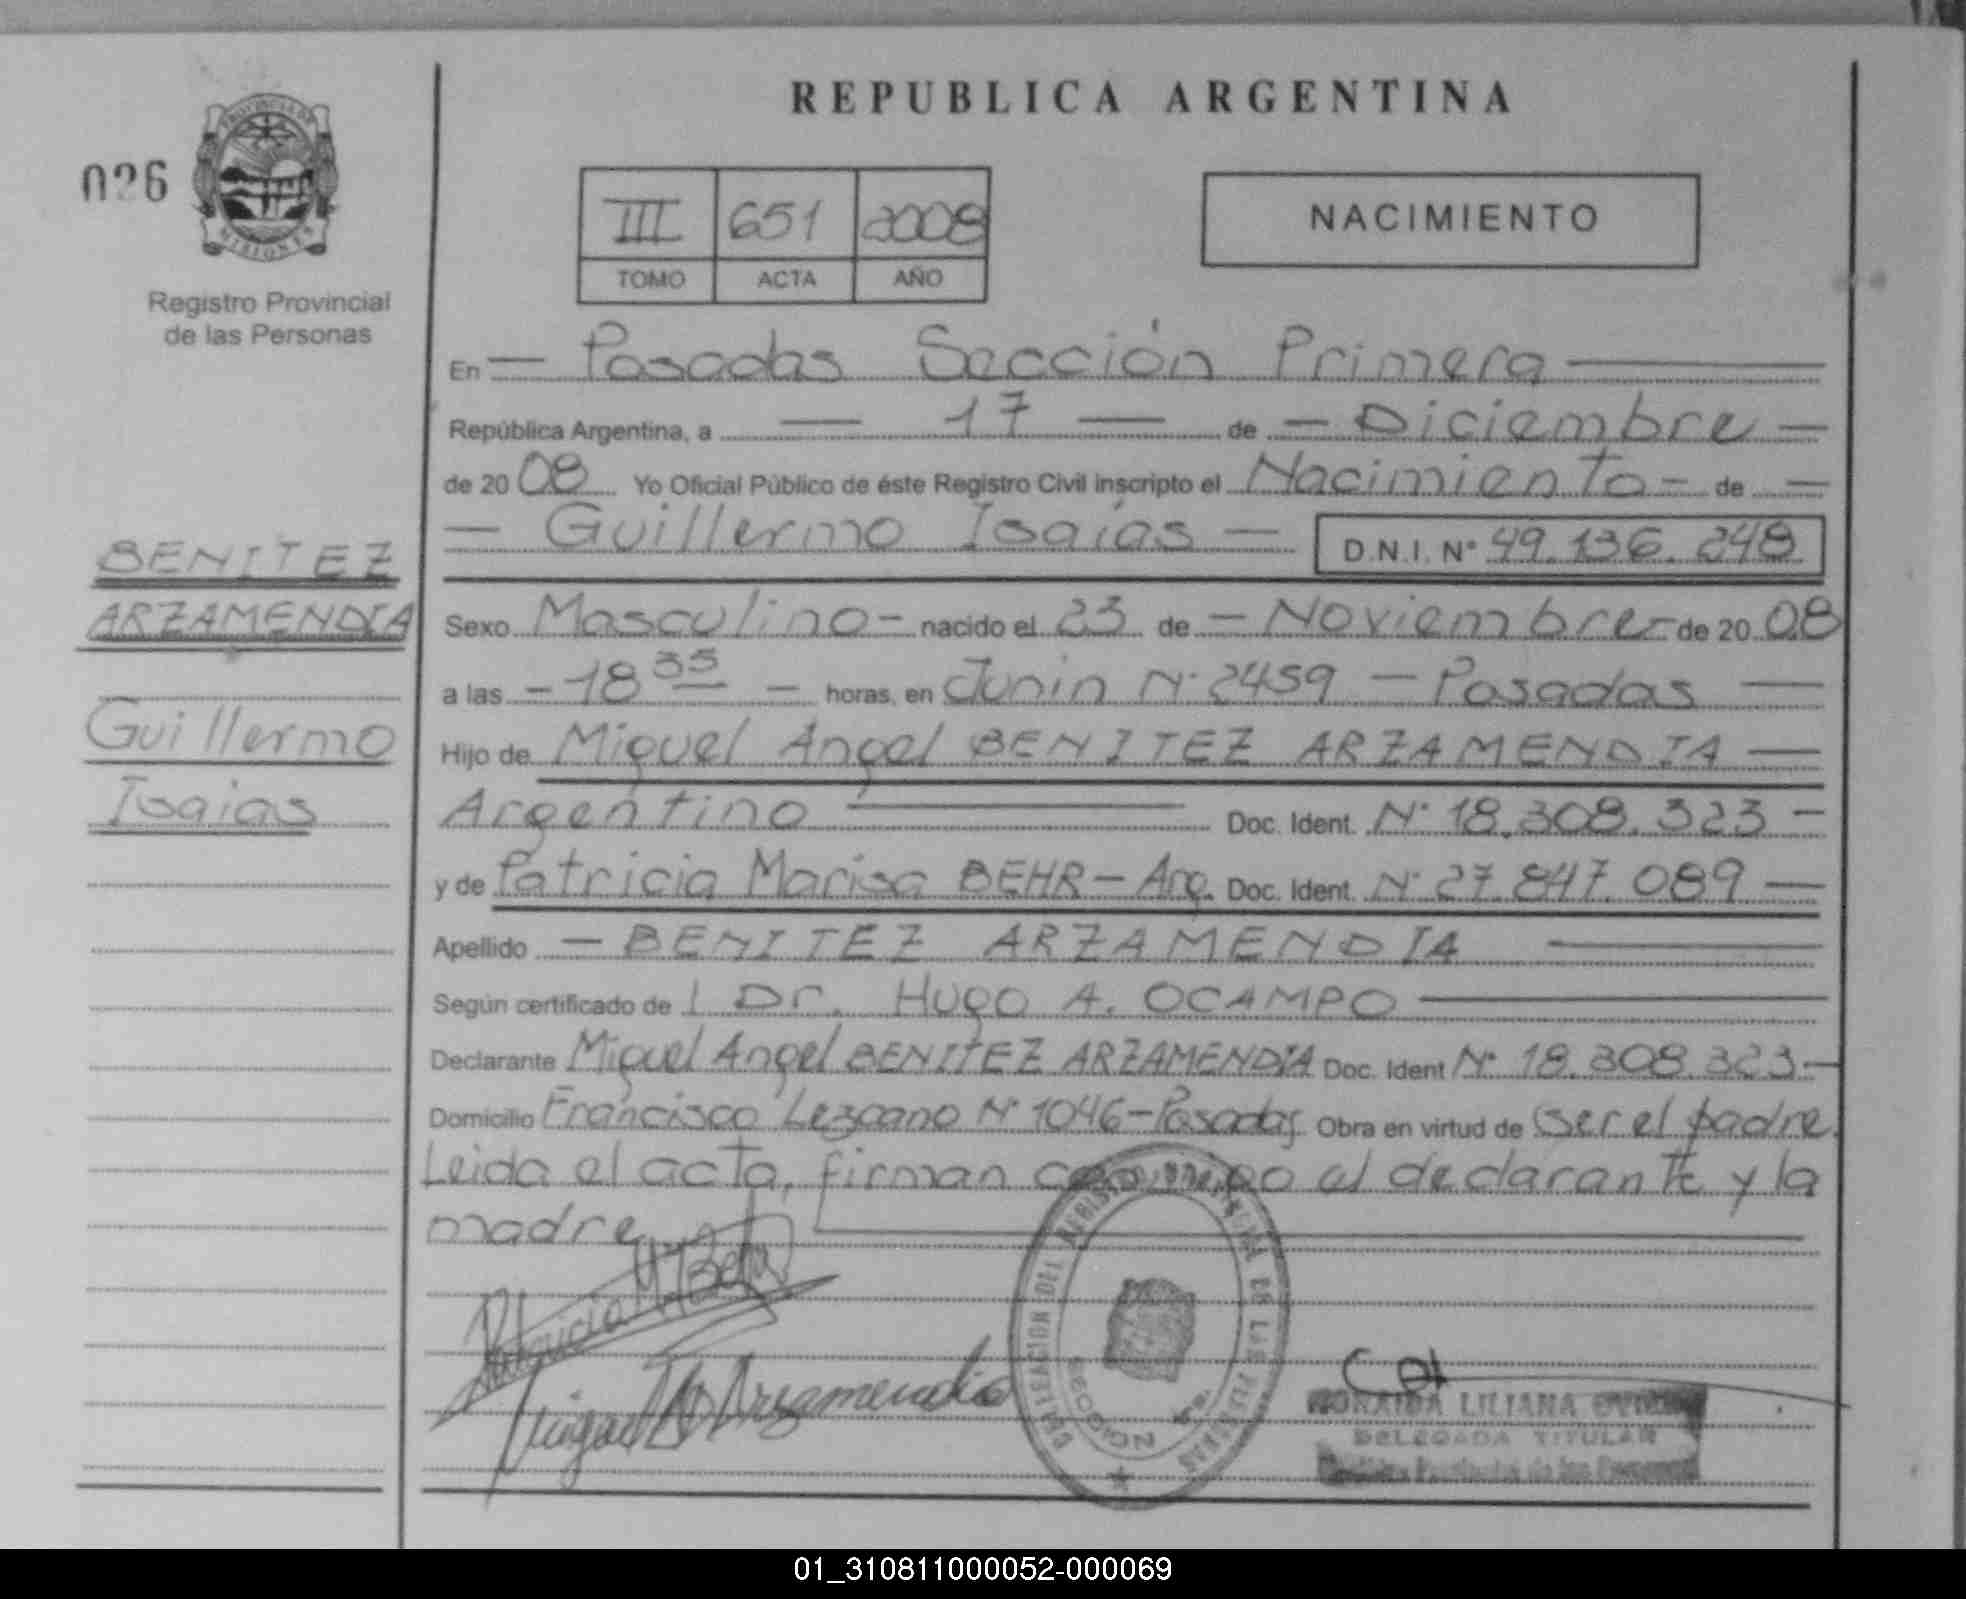 REPUBLICA ARGENTINA
026
PROVINCIA DE
MISIONES
Registro Provincial
de las Personas
III 651 2008
TOMO ACTA AÑO
NACIMIENTO
En — Posadas Sección Primera —
República Argentina, a — 17 — de — Diciembre —
de 2008 Yo Oficial Público de éste Registro Civil inscripto el Nacimiento - de —
— Guillermo Isaías — D.N.I. N° 49.136.248
BENITEZ
ARZAMENDIA
Guillermo
Isaias
Sexo Masculino - nacido el 23 de — Noviembre - de 2008
a las - 18 35 - horas, en Junin N° 2459 — Posadas —
Hijo de Miguel Angel BENITEZ ARZAMENDIA —
Argentino — Doc. Ident. N° 18.308.323 —
y de Patricia Marisa BEHR — Arg. Doc. Ident. N° 27.847.089 —
Apellido — BENITEZ ARZAMENDIA —
Según certificado de l Dr. Hugo A. OCAMPO —
Declarante Miguel Angel BENITEZ ARZAMENDIA Doc. Ident N° 18.308.323 —
Domicilio Francisco Lezcano N° 1046 - Posadas Obra en virtud de ser el padre.
Leida el acta, firman conmigo el declarante y la
madre
Patricia M. Behr
Miguel A B Arzamendia
DELEGACION DEL REGISTRO PROVINCIAL DE LAS PERSONAS
LILIANA
DELEGADA TITULAR
Registro Provincial de las Personas
01_310811000052-000069